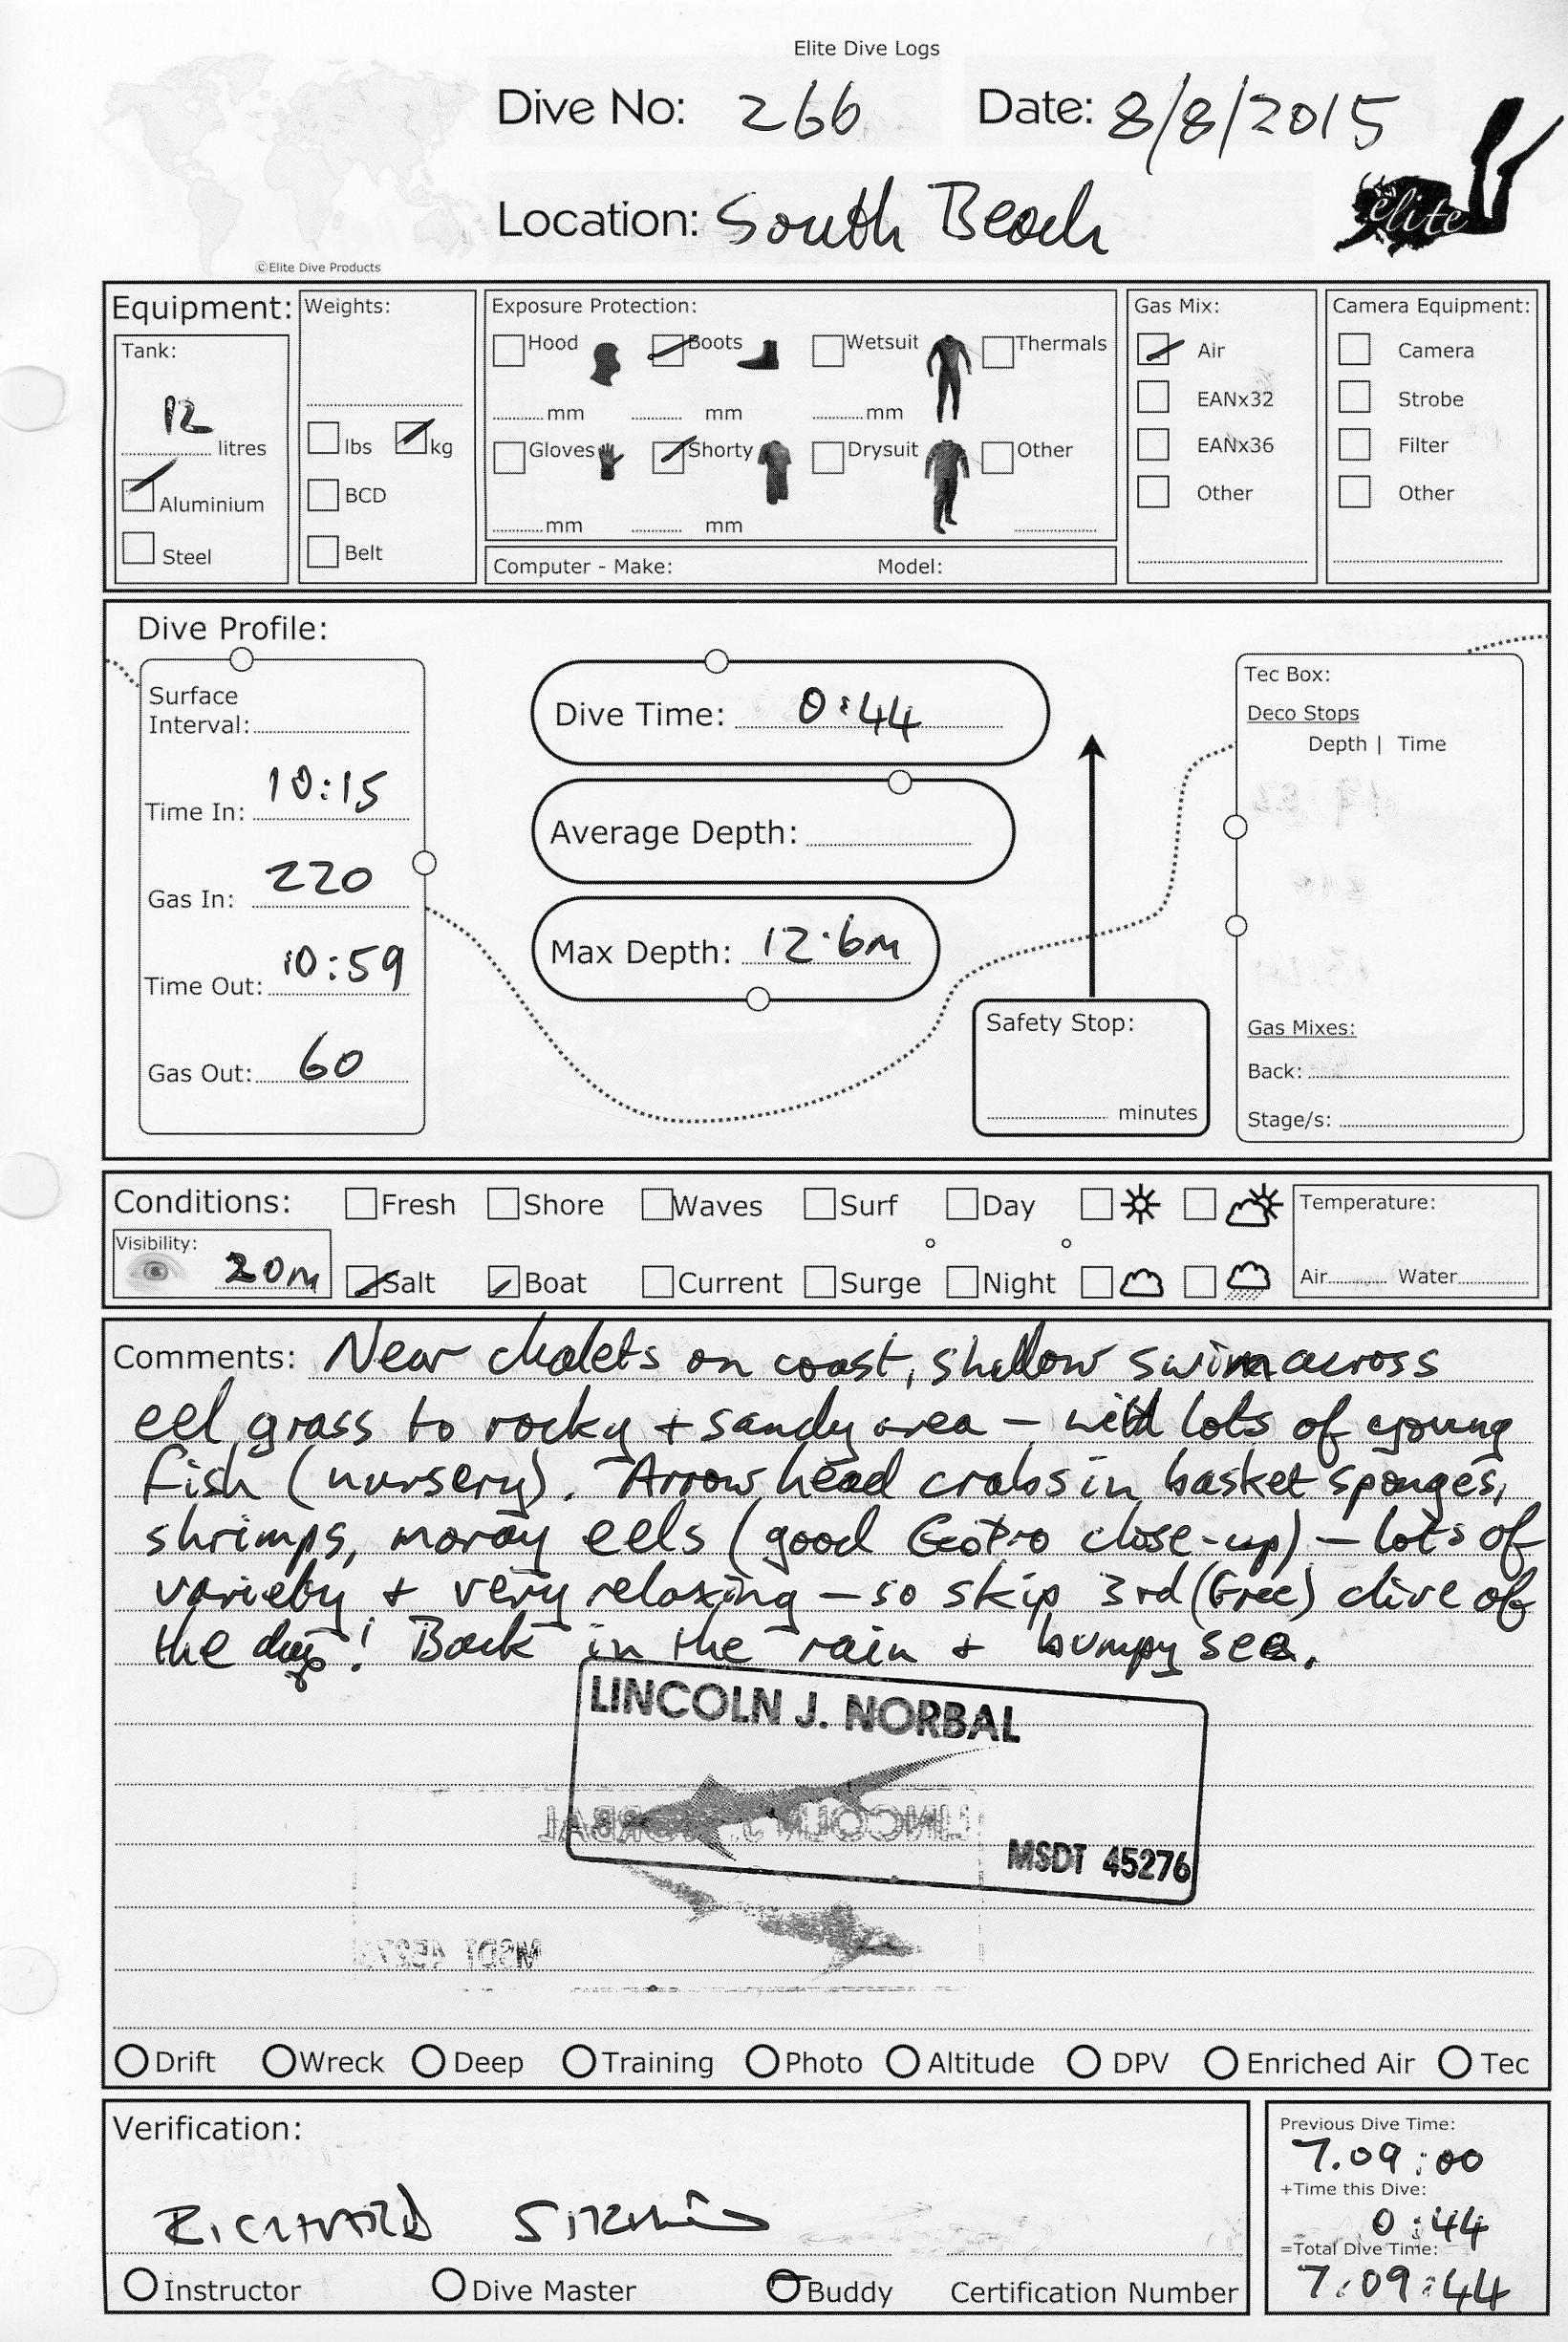 Elite Dive Logs
Dive No: 266 Date: 8/8/2015
Location: South Beach
elite
©Elite Dive Products
Equipment:
Tank:
12 litres
Aluminium
Steel
Weights:
lbs kg
BCD
Belt
Exposure Protection:
Hood Boots Wetsuit Thermals
mm mm mm
Gloves Shorty Drysuit Other
mm mm
Computer - Make: Model:
Gas Mix:
Air
EANx32
EANx36
Other
Camera Equipment:
Camera
Strobe
Filter
Other
Dive Profile:
Surface
Interval:
Time In: 10:15
Gas In: 220
Time Out: 10:59
Gas Out: 60
Dive Time: 0:44
Average Depth:
Max Depth: 12.6m
Safety Stop:
minutes
Tec Box:
Deco Stops
Depth | Time
Gas Mixes:
Back:
Stage/s:
Conditions: Fresh Shore Waves Surf Day
Visibility: 20m
Salt Boat Current Surge Night
Temperature:
Air Water
Comments: Near chalets on coast, shallow swim across
eel grass to rocky + sandy area – with lots of young
fish (nursery). Arrow head crabs in basket sponges,
shrimps, moray eels (good GoPro close-up) – lots of
variety + very relaxing – so skip 3rd (free) dive of
the day! Back in the rain + bumpy sea.
LINCOLN J. NORBAL
MSDT 45276
Drift Wreck Deep Training Photo Altitude DPV Enriched Air Tec
Verification:
RICHARD
Instructor Dive Master Buddy Certification Number
Previous Dive Time:
7.09:00
+Time this Dive:
0:44
=Total Dive Time:
7:09:44